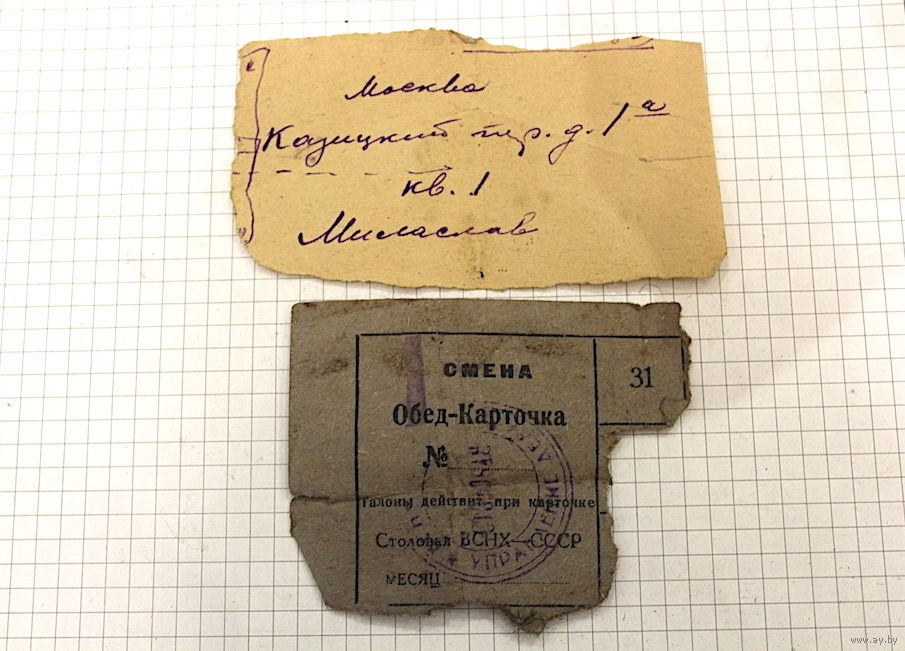 Москва
Казицкий пер. д. 1а
кв. 1
Миласлав
СМЕНА
31
Обед-Карточка
№
Талоны действит. при карточке
Столовая ВСНХ—СССР
УПРАВЛЕНИЕ ДЕ
МЕСЯЦ
www.ay.by